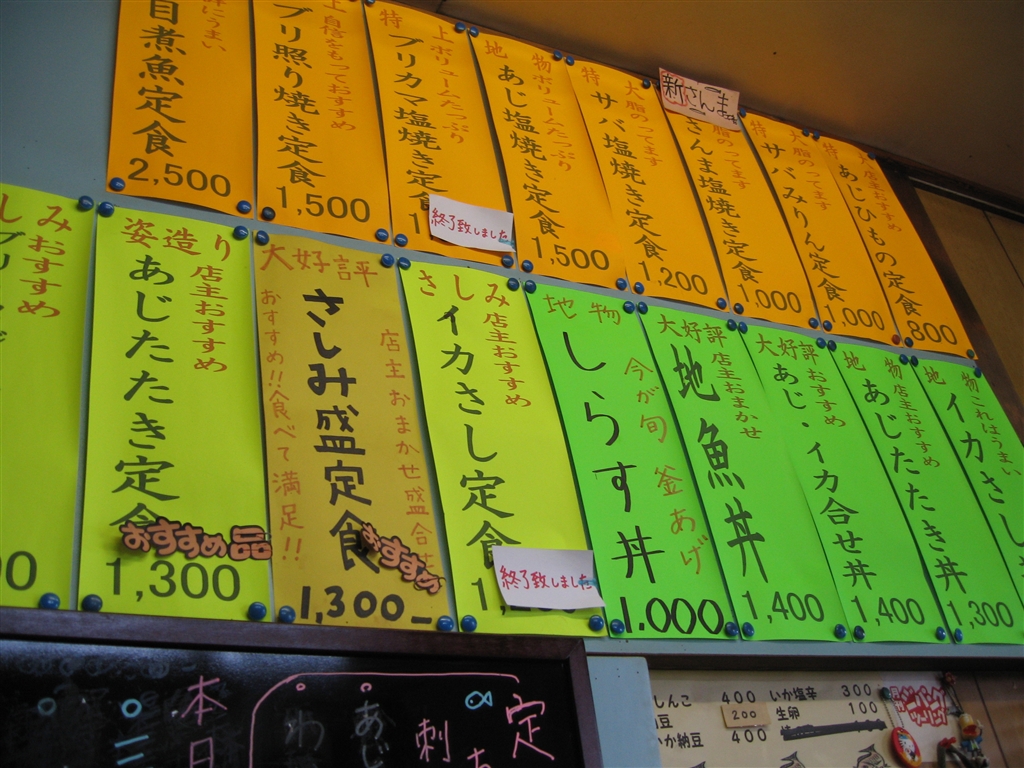 にうまい
目煮魚定食
2,500
上 自信をもっておすすめ
ブリ照り焼き定食
1,500
特上 ボリュームたっぷり
ブリカマ塩焼き定食
終了致しました
地物 ボリュームたっぷり
あじ塩焼き定食
1,500
特大 脂のってます
サバ塩焼き定食
1,200
新さんま
脂のってます
さんま塩焼き定食
1,000
特大 脂のってます
サバみりん定食
1,000
特大 店主おすすめ
あじひもの定食
800
さしみ
おすすめ
姿造り
店主おすすめ
あじたたき定食
おすすめ品
1,300
大好評
店主おまかせ盛合せ
さしみ盛定食
おすすめ!!食べて満足!!
おすすめ
1,300-
さしみ
店主おすすめ
イカさし定食
終了致しました
地物
今が旬 釜あげ
しらす丼
1.000
大好評
店主おまかせ
地魚丼
1,400
大好評
おすすめ
あじ・イカ合せ丼
1,400
地物
店主おすすめ
あじたたき丼
1,300
地物
これはうまい
イカさし
本日
定
あじ
刺
わ
しんこ 400
200
いか納豆 400
いか塩辛 300
生卵 100